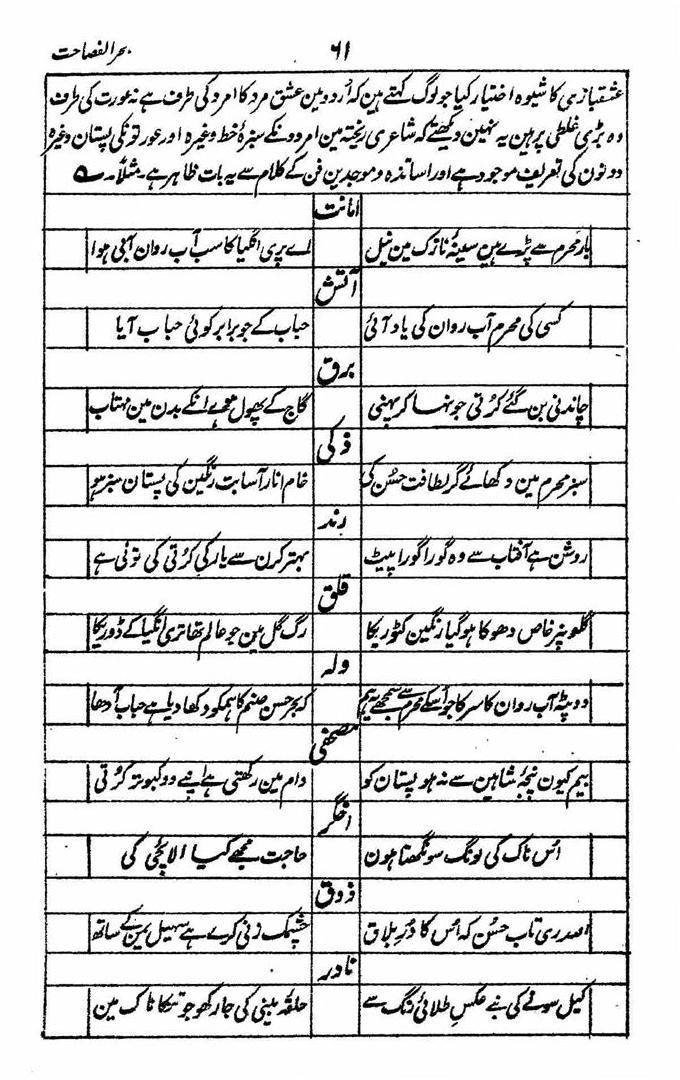 بحر الفصاحت
۶۱
عشقبازی کا شیوہ اختیار کیا جو لوگ کہتے ہین کہ اُردو مین عشق مرد کا امرد کی طرف ہے نہ عورت کی طرف
وہ بڑی غلطی پر ہین یہ نہین دیکھتے کہ شاعری ریختہ مین امردونکے سبزۂ خط وغیرہ اور عورتونکی پستان وغیرہ
دونون کی تعریف موجود ہے اور اساتذہ و موجدین فن کے کلام سے یہ بات ظاہر ہے۔ مثلاً۔ ؎
امانت
بار محرم سے پڑے ہین سینۂ نازک مین نیل
اے پری انگیا کا سب آب روان آبی ہوا
آتش
کسی کی محرم آب روان کی یاد آئی
حباب کے جو برابر کوئی حباب آیا
برق
چاندنی بن گئے کُرتی جو نہا کر پہنی
گاج کے پھول ہوے انکے بدن مین مہتاب
ذکی
سبز محرم مین دکھائے گر لطافت حسُن کی
خام انار آسا بت رنگین کی پستان سبز ہو
رند
روشن ہے آفتاب سے وہ گورا گورا پیٹ
بہتر کرن سے یار کی کُرتی کی توئی ہے
قلق
گلو پر خاص دھوکا ہوگیا رنگین کٹوریکا
رگ گل مین جو عالم تھا تری انگیا کے ڈوریکا
ولہ
دوپٹہ آب روان کا سرکا جو اُسکے محرم سے سمجھے یہ ہم
کہ بحر حسن صنم کا ہمکو دکھا دیا ہے حباب آدھا
مصحفی
بیم کیون پنجۂ شاہین سے نہ ہو پستان کو
دام مین رکھتی ہے اپنے دو کبوتر کُرتی
اخگر
اُس ناک کی لونگ سونگھتا ہون
حاجت مجھے کیا الائچی کی
ذوق
اللہ ری تاب حسُن کہ اُس کا دُرِ بلاق
چشمک زنی کرے ہے سہیل یمن کے ساتھ
نادر
کیل سونے کی بنے عکسِ طلائی رنگ سے
حلقۂ بینی کی جا رکھو جو تنکا ناک مین